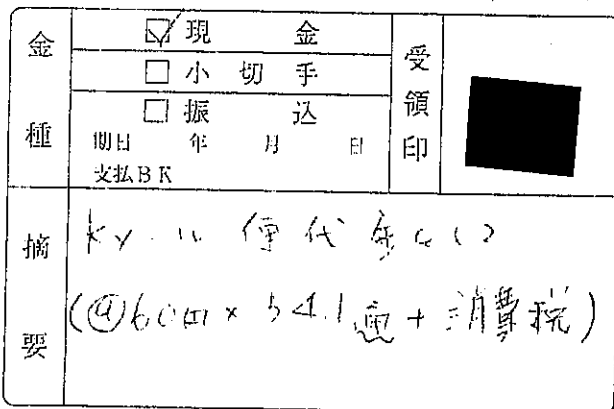 金種
☑現金
☐小切手
☐振込
期日 年 月 日
支払BK
受領印
摘要
便代金
(@60円×541通+消費税)